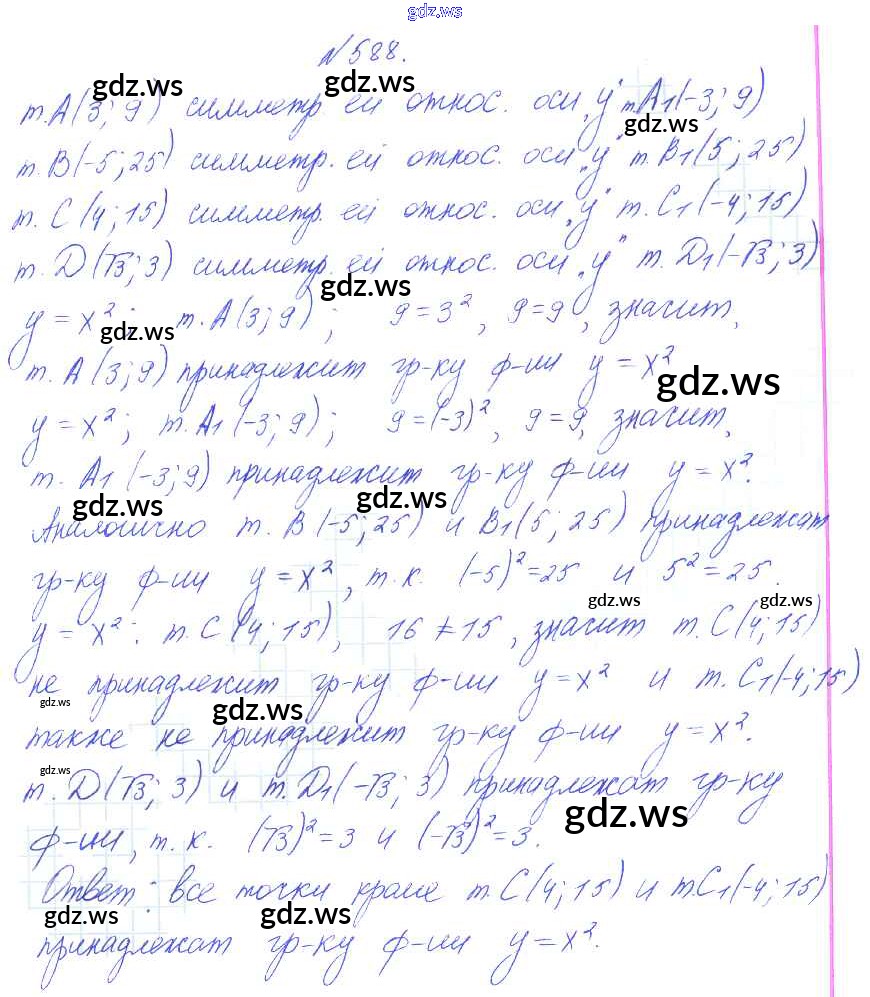 gdz.ws
№588.
gdz.ws gdz.ws
т. A(3; 9) симметр. ей относ. оси „y" т. A1(-3; 9)
gdz.ws
т. B(-5; 25) симметр. ей относ. оси „y" т. B1(5; 25)
т. C(4; 15) симметр. ей относ. оси „y" т. C1(-4; 15)
т. D(√3; 3) симметр. ей относ. оси „y" т. D1(-√3; 3)
gdz.ws
y = x²; т. A(3; 9); 9 = 3², 9 = 9, значит,
gdz.ws
т. A(3; 9) принадлежит гр-ку ф-ии y = x²
gdz.ws
y = x²; т. A1(-3; 9); 9 = (-3)², 9 = 9, значит,
т. A1(-3; 9) принадлежит гр-ку ф-ии y = x².
gdz.ws gdz.ws
Аналогично т. B(-5; 25) и B1(5; 25) принадлежат
гр-ку ф-ии y = x², т.к. (-5)² = 25 и 5² = 25.
gdz.ws gdz.ws
y = x²: т. C(4; 15), 16 ≠ 15, значит т. C(4; 15)
не принадлежит гр-ку ф-ии y = x² и т. C1(-4; 15)
gdz.ws gdz.ws
также не принадлежит гр-ку ф-ии y = x².
gdz.ws
т. D(√3; 3) и т. D1(-√3; 3) принадлежат гр-ку
gdz.ws
ф-ии, т.к. (√3)² = 3 и (-√3)² = 3.
Ответ: все точки кроме т. C(4; 15) и т. C1(-4; 15)
gdz.ws gdz.ws
принадлежат гр-ку ф-ии y = x².